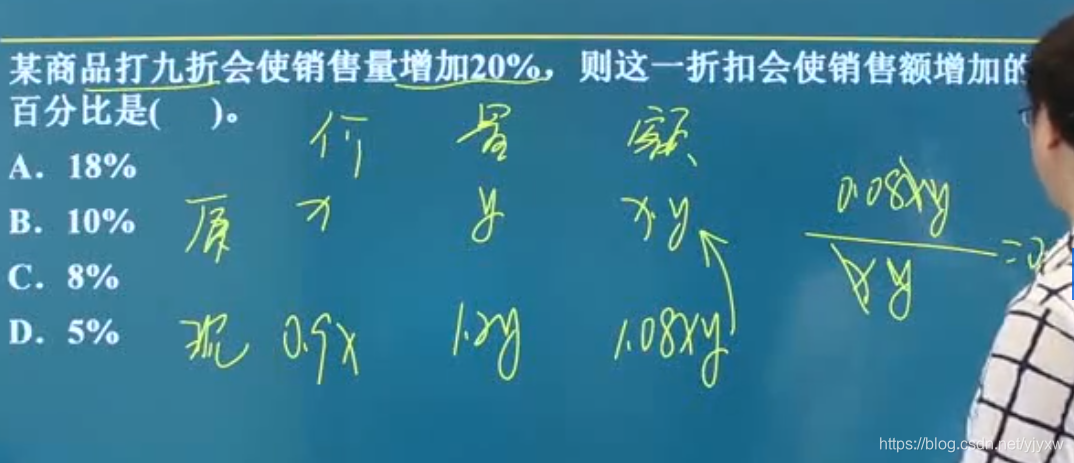 某商品打九折会使销售量增加20%，则这一折扣会使销售额增加的
百分比是(    )。
A. 18%
B. 10%
C. 8%
D. 5%
价 量 额
原 x y x·y
现 0.9x 1.2y 1.08xy
0.08xy
xy
=0.
https://blog.csdn.net/yjyxw